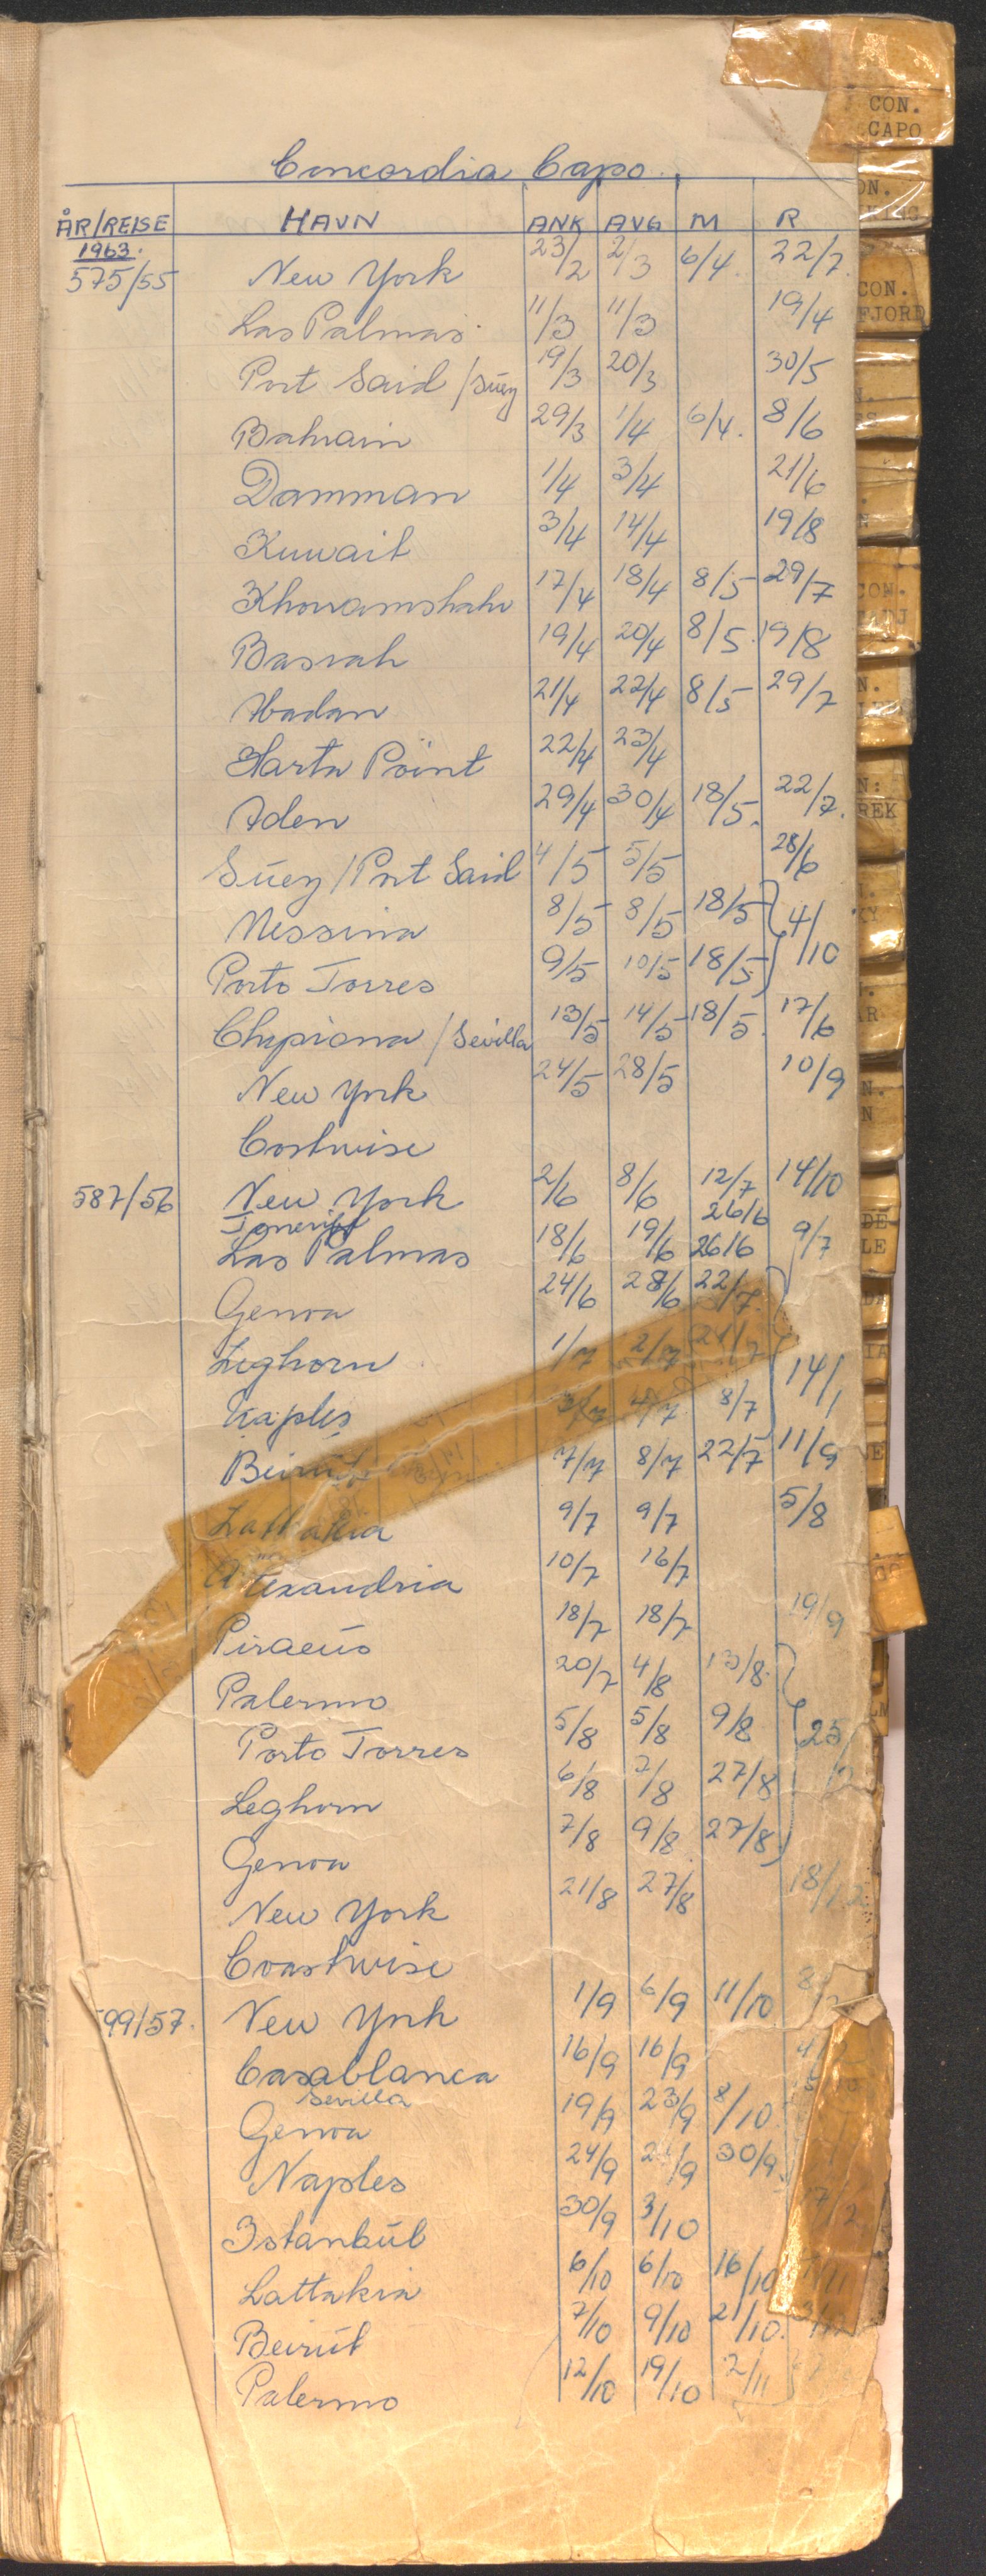 CON.
CAPO
Concordia Capo.
ÅR/REISE HAVN ANK AVG M R
1963.
575/55 New York 23/2 2/3 6/4. 22/7.
Las Palmas 11/3 11/3 19/4
Port Said /Suez 19/3 20/3 30/5
Bahrain 29/3 1/4 6/4. 8/6
Damman 1/4 3/4 21/6
Kuwait 3/4 14/4 19/8
Khorramshahr 17/4 18/4 8/5 29/7
Basrah 19/4 20/4 8/5 19/8
Abadan 21/4 22/4 8/5 29/7
Harta Point 22/4 23/4
Aden 29/4 30/4 18/5. 22/7.
Suez / Port Said 4/5 5/5 28/6
Messina 8/5 8/5 18/5 4/10
Porto Torres 9/5 10/5 18/5
Chipiona / Sevilla 13/5 14/5 18/5. 17/6
New York 24/5 28/5 10/9
Costwise
587/56 New York 2/6 8/6 12/7 14/10
Teneriff 26/6
Las Palmas 18/6 19/6 26/6 9/7
Genoa 24/6 28/6 22/7.
Leghorn 1/7 2/7 21/7 14/1
Naples 3/7 4/7 8/7
Beirut 7/7 8/7 22/7 11/9
Lattakia 9/7 9/7 5/8
Alexandria 10/7 16/7
Piraeus 18/7 18/7 19/9
Palermo 20/7 4/8 13/8.
Porto Torres 5/8 5/8 9/8 25
Leghorn 6/8 7/8 27/8
Genoa 7/8 9/8 27/8
New York 21/8 27/8 18/12
Coastwise
599/57. New York 1/9 6/9 11/10
Casablanca 16/9 16/9
Sevilla
Genoa 19/9 23/9 8/10
Naples 24/9 30/9.
Istanbul 30/9 3/10
Lattakia 6/10 6/10 16/10
Beirut 7/10 9/10 21/10.
Palermo 12/10 19/10 2/11
CON.
FJORD